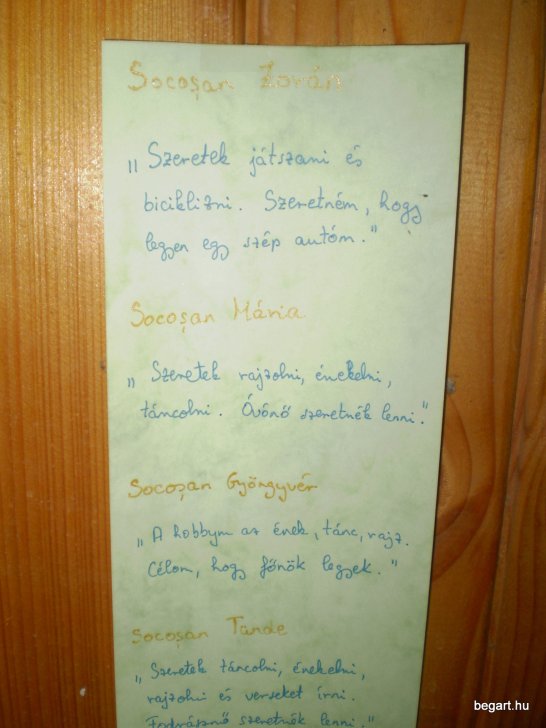 Socoşan Zorán
„Szeretek játszani és
biciklizni. Szeretném, hogy
legyen egy szép autóm."
Socoşan Mária
„Szeretek rajzolni, énekelni,
táncolni. Óvónő szeretnék lenni."
Socoşan Gyöngyvér
„A hobbym az ének, tánc, rajz.
Célom, hogy főnök legyek."
Socoşan Tünde
„Szeretek táncolni, énekelni,
rajzolni és verseket írni.
Fodrásznő szeretnék lenni."
begart.hu